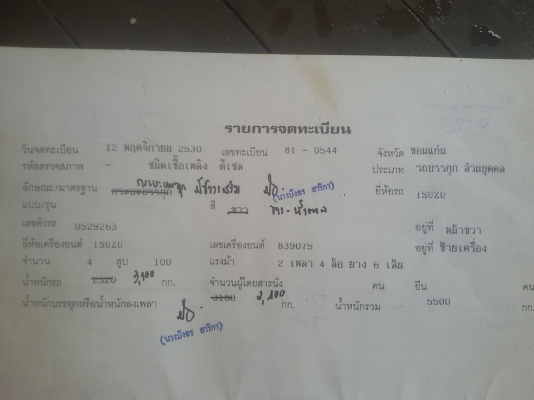 รายการจดทะเบียน
วันจดทะเบียน 12 พฤศจิกายน 2530 เลขทะเบียน 81 - 0544 จังหวัด ขอนแก่น
รหัสตรวจสภาพ - ชนิดเชื้อเพลิง ดีเซล ประเภท รถบรรทุก ส่วนบุคคล
ลักษณะ/มาตรฐาน กระบะบรรทุก ยี่ห้อรถ ISUZU
(นางบังอร สาริกา)
แบบ/รุ่น สี ขาว
เลขตัวรถ 0529263 อยู่ที่ หน้าขวา
ยี่ห้อเครื่องยนต์ ISUZU เลขเครื่องยนต์ 839075 อยู่ที่ ซ้ายเครื่อง
จำนวน 4 สูบ 100 แรงม้า 2 เพลา 4 ล้อ ยาง 6 เส้น
น้ำหนักรถ 2320 3,400 กก. จำนวนผู้โดยสารนั่ง คน ยืน คน
น้ำหนักบรรทุกหรือน้ำหนักลงเพลา 3180 2,100 กก. น้ำหนักรวม 5500 กก.
(นางบังอร สาริกา)